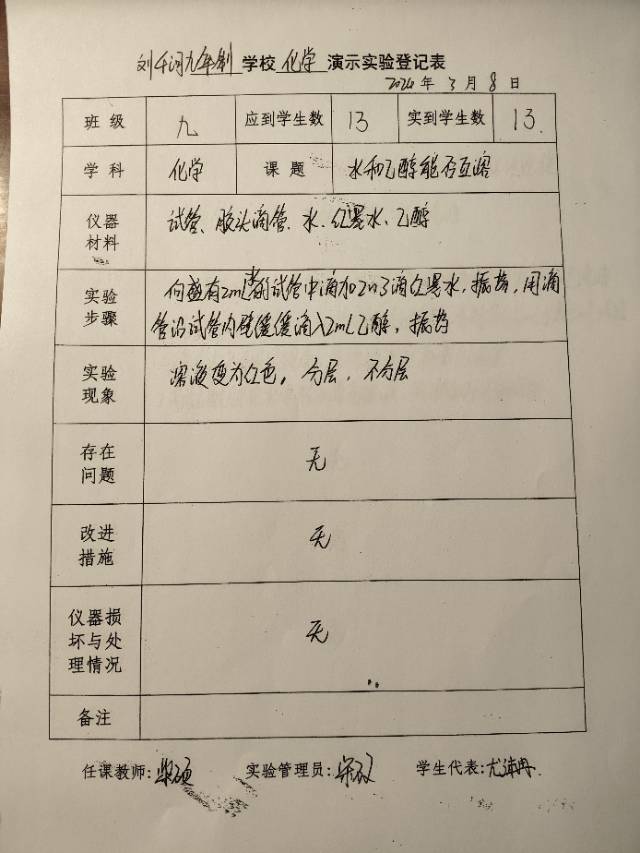 九年制 学校 化学 演示实验登记表
2024 年 3 月 8 日
班级 九 应到学生数 13 实到学生数 13
学科 化学 课题 水和乙醇能否互溶
仪器
材料
试管、胶头滴管、水、红墨水、乙醇
实验
步骤
向盛有2mL水的试管中滴加2~3滴红墨水,振荡,用滴
管沿试管内壁缓缓滴入2mL乙醇,振荡
实验
现象
溶液变为红色,分层,不分层
存在
问题
无
改进
措施
无
仪器损
坏与处
理情况
无
备注
任课教师: 实验管理员: 学生代表: